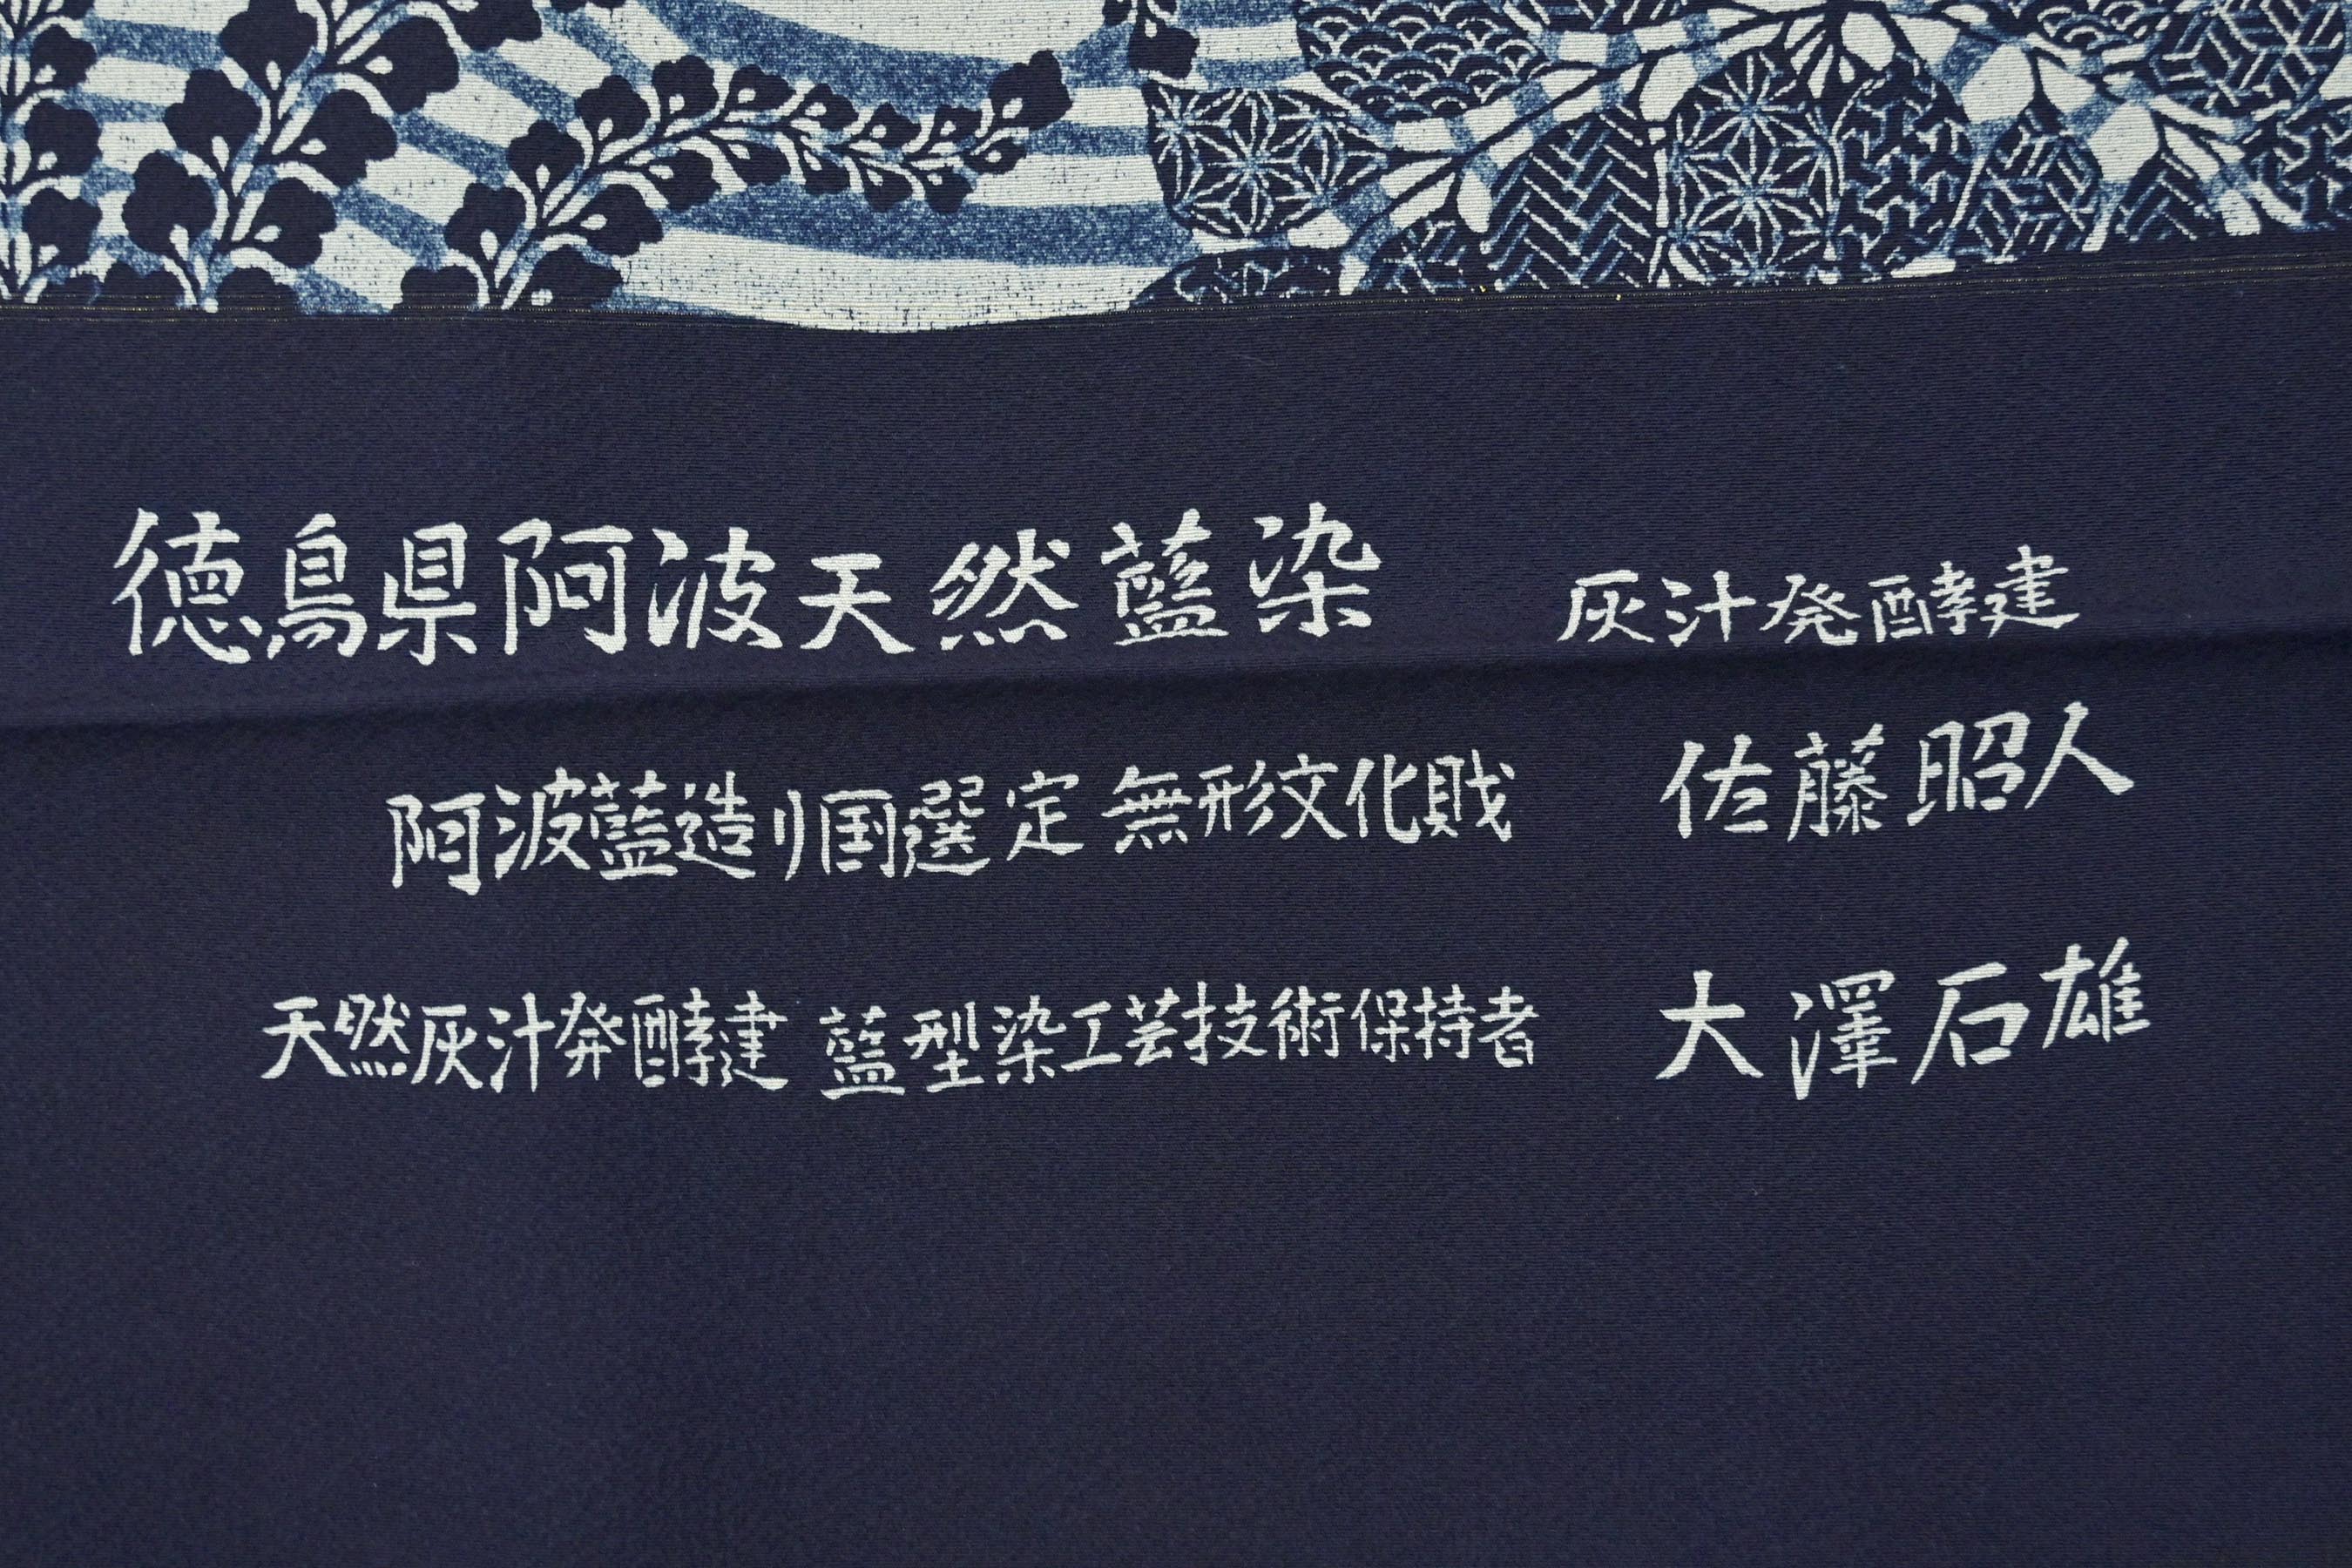 徳島県阿波天然藍染 灰汁発酵建
阿波藍造り国選定 無形文化財 佐藤昭人
天然灰汁発酵建 藍型染工芸技術保持者 大澤石雄